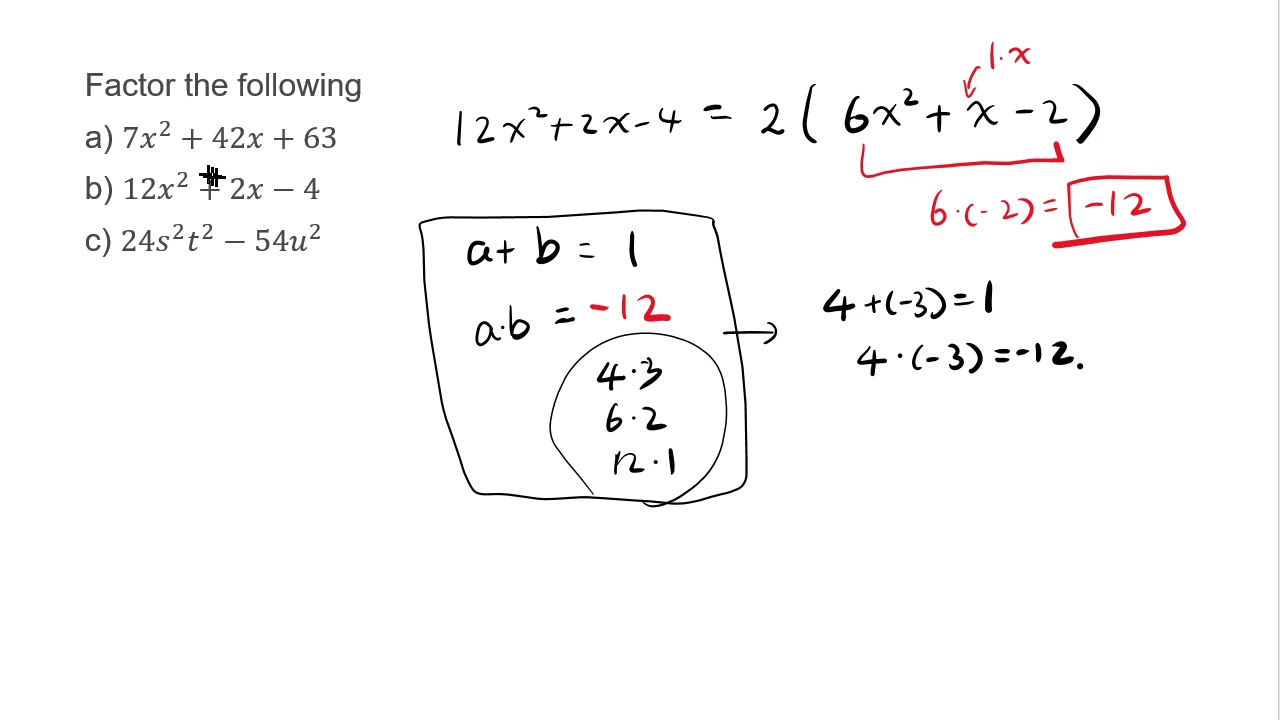 Factor the following
a) 7x² + 42x + 63
b) 12x² + 2x − 4
c) 24s²t² − 54u²
1·x
12x²+2x-4 = 2(6x²+x-2)
6·(-2)= -12
a+b = 1
a·b = -12
4·3
6·2
12·1
4+(-3)=1
4·(-3)=-12.